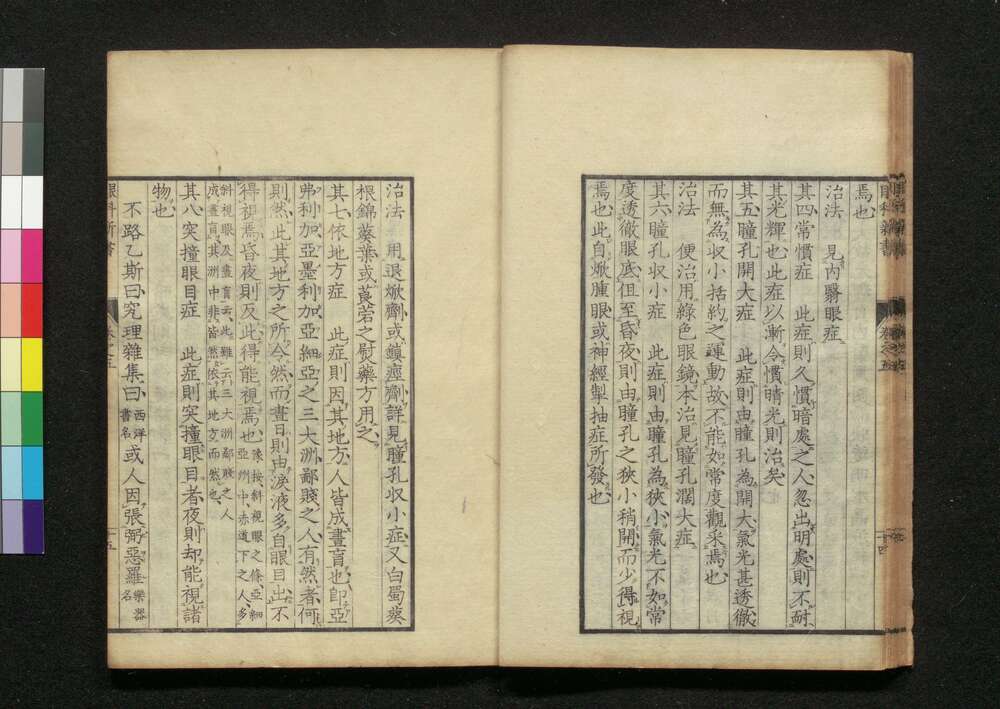 焉也
治法　見内翳眼症
其四常慣症　此症則久慣暗處之人忽出明處則不耐
其光輝也此症以漸令慣晴光則治矣
其五瞳孔開大症　此症則由瞳孔為開大氣光甚透徹
而無為收小括約之運動故不能如常度觀采焉也
治法　便治用綠色眼鏡本治見瞳孔濶大症
其六瞳孔收小症　此症則由瞳孔為狹小氣光不如常
度透徹眼底但至昏夜則由瞳孔之狹小稍開而少得視
焉也此自焮腫眼或神經掣抽症所發也
眼科新書
卷之五
十四
治法　用退焮劑或鎮痙劑詳見瞳孔收小症又白蜀葵
根錦葵葉或莨菪之熨藥方用之
其七依地方症　此症則因其地方人皆成晝盲也即亞
弗利加亞墨利加亞細亞之三大洲鄙賤之人有然者何
則然此其地方之所令然而晝日則由淚液多自眼目出不
得視焉昏夜則反此得能視焉也豫按斜視眼之條亞細亞州中赤道下之人多
斜視眼及晝盲云此雖云三大洲鄙賤之人
成晝盲其洲中非皆然依其地方而然也
其八突撞眼目症　此症則突撞眼目者夜則却能視諸
物也
不路乙斯曰究理雜集曰西洋書名或人因張弼惡羅樂器名
眼科新書
卷之五
十五